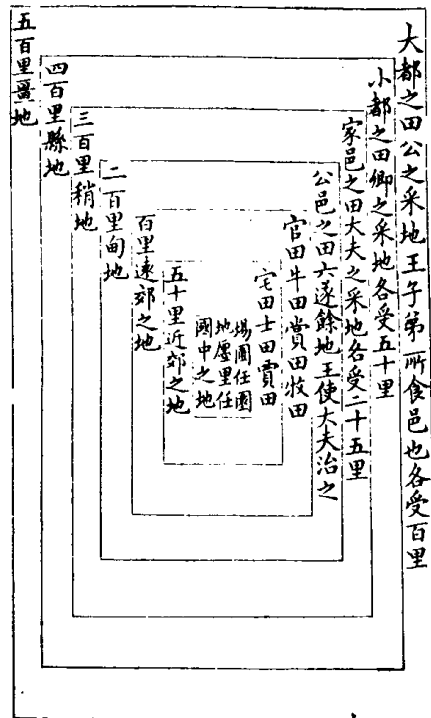 大都之田公之采地王子弟所食邑也各受百里
小都之田卿之采地各受五十里
家邑之田大夫之采地各受二十五里
公邑之田六遂餘地王使大夫治之
官田牛田賞田牧田
宅田士田賈田
場圃任園
地廛里任
國中之地
五十里近郊之地
百里遠郊之地
二百里甸地
三百里稍地
四百里縣地
五百里畺地